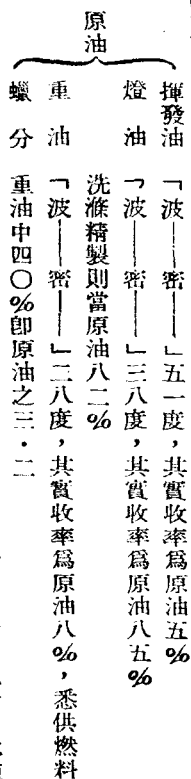 原油
揮發油 「波——密——」五一度，其實收率爲原油五%
燈油 「波——密——」三八度，其實收率爲原油八五%
洗滌精製則當原油八二%
重油 「波——密——」二八度，其實收率爲原油八%，悉供燃料
蠟分 重油中四〇%卽原油之三・二